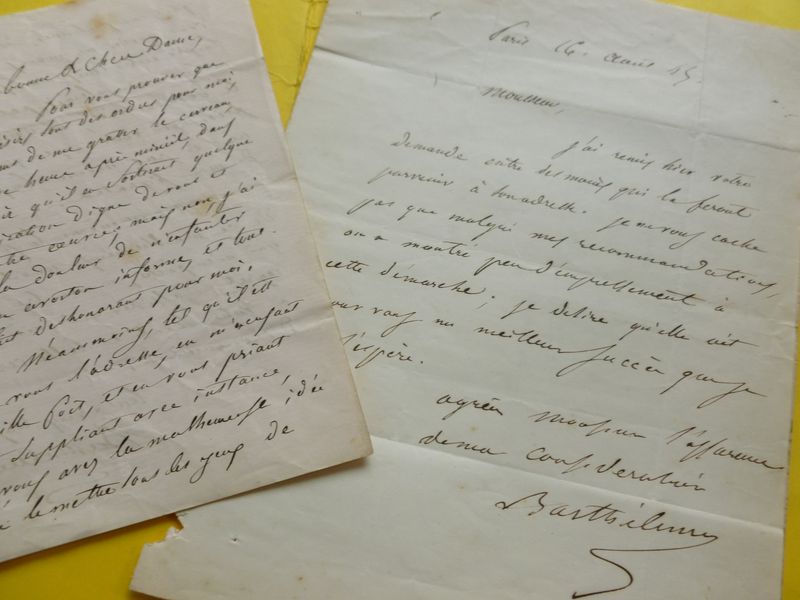 bonne & chère Dame,
Pour vous prouver que
sont des ordres pour moi,
de me gratter le cerveau,
heure après minuit, dans
qu'il en sortirait quelque
digne de vous et
mais non, j'ai
la douleur de n'enfanter
avorton informe, et tout
déshonorant pour moi.
Néanmoins, tel qu'il est
vous l'adresse, en
et en vous priant
suppliant avec instance,
vous avez la malheureuse idée
le mettre sous les yeux de
Paris 16 45.
Monsieur,
J'ai remis hier votre
demande entre des mains qui la feront
parvenir à son adresse. je ne vous cache
pas que malgré mes recommandations,
on a montré peu d'empressement à
cette demarche; je desire qu'elle ait
pour vous un meilleur succès que je
l'espère.
agréez Monsieur l'assurance
de ma consideration
Barthélemy